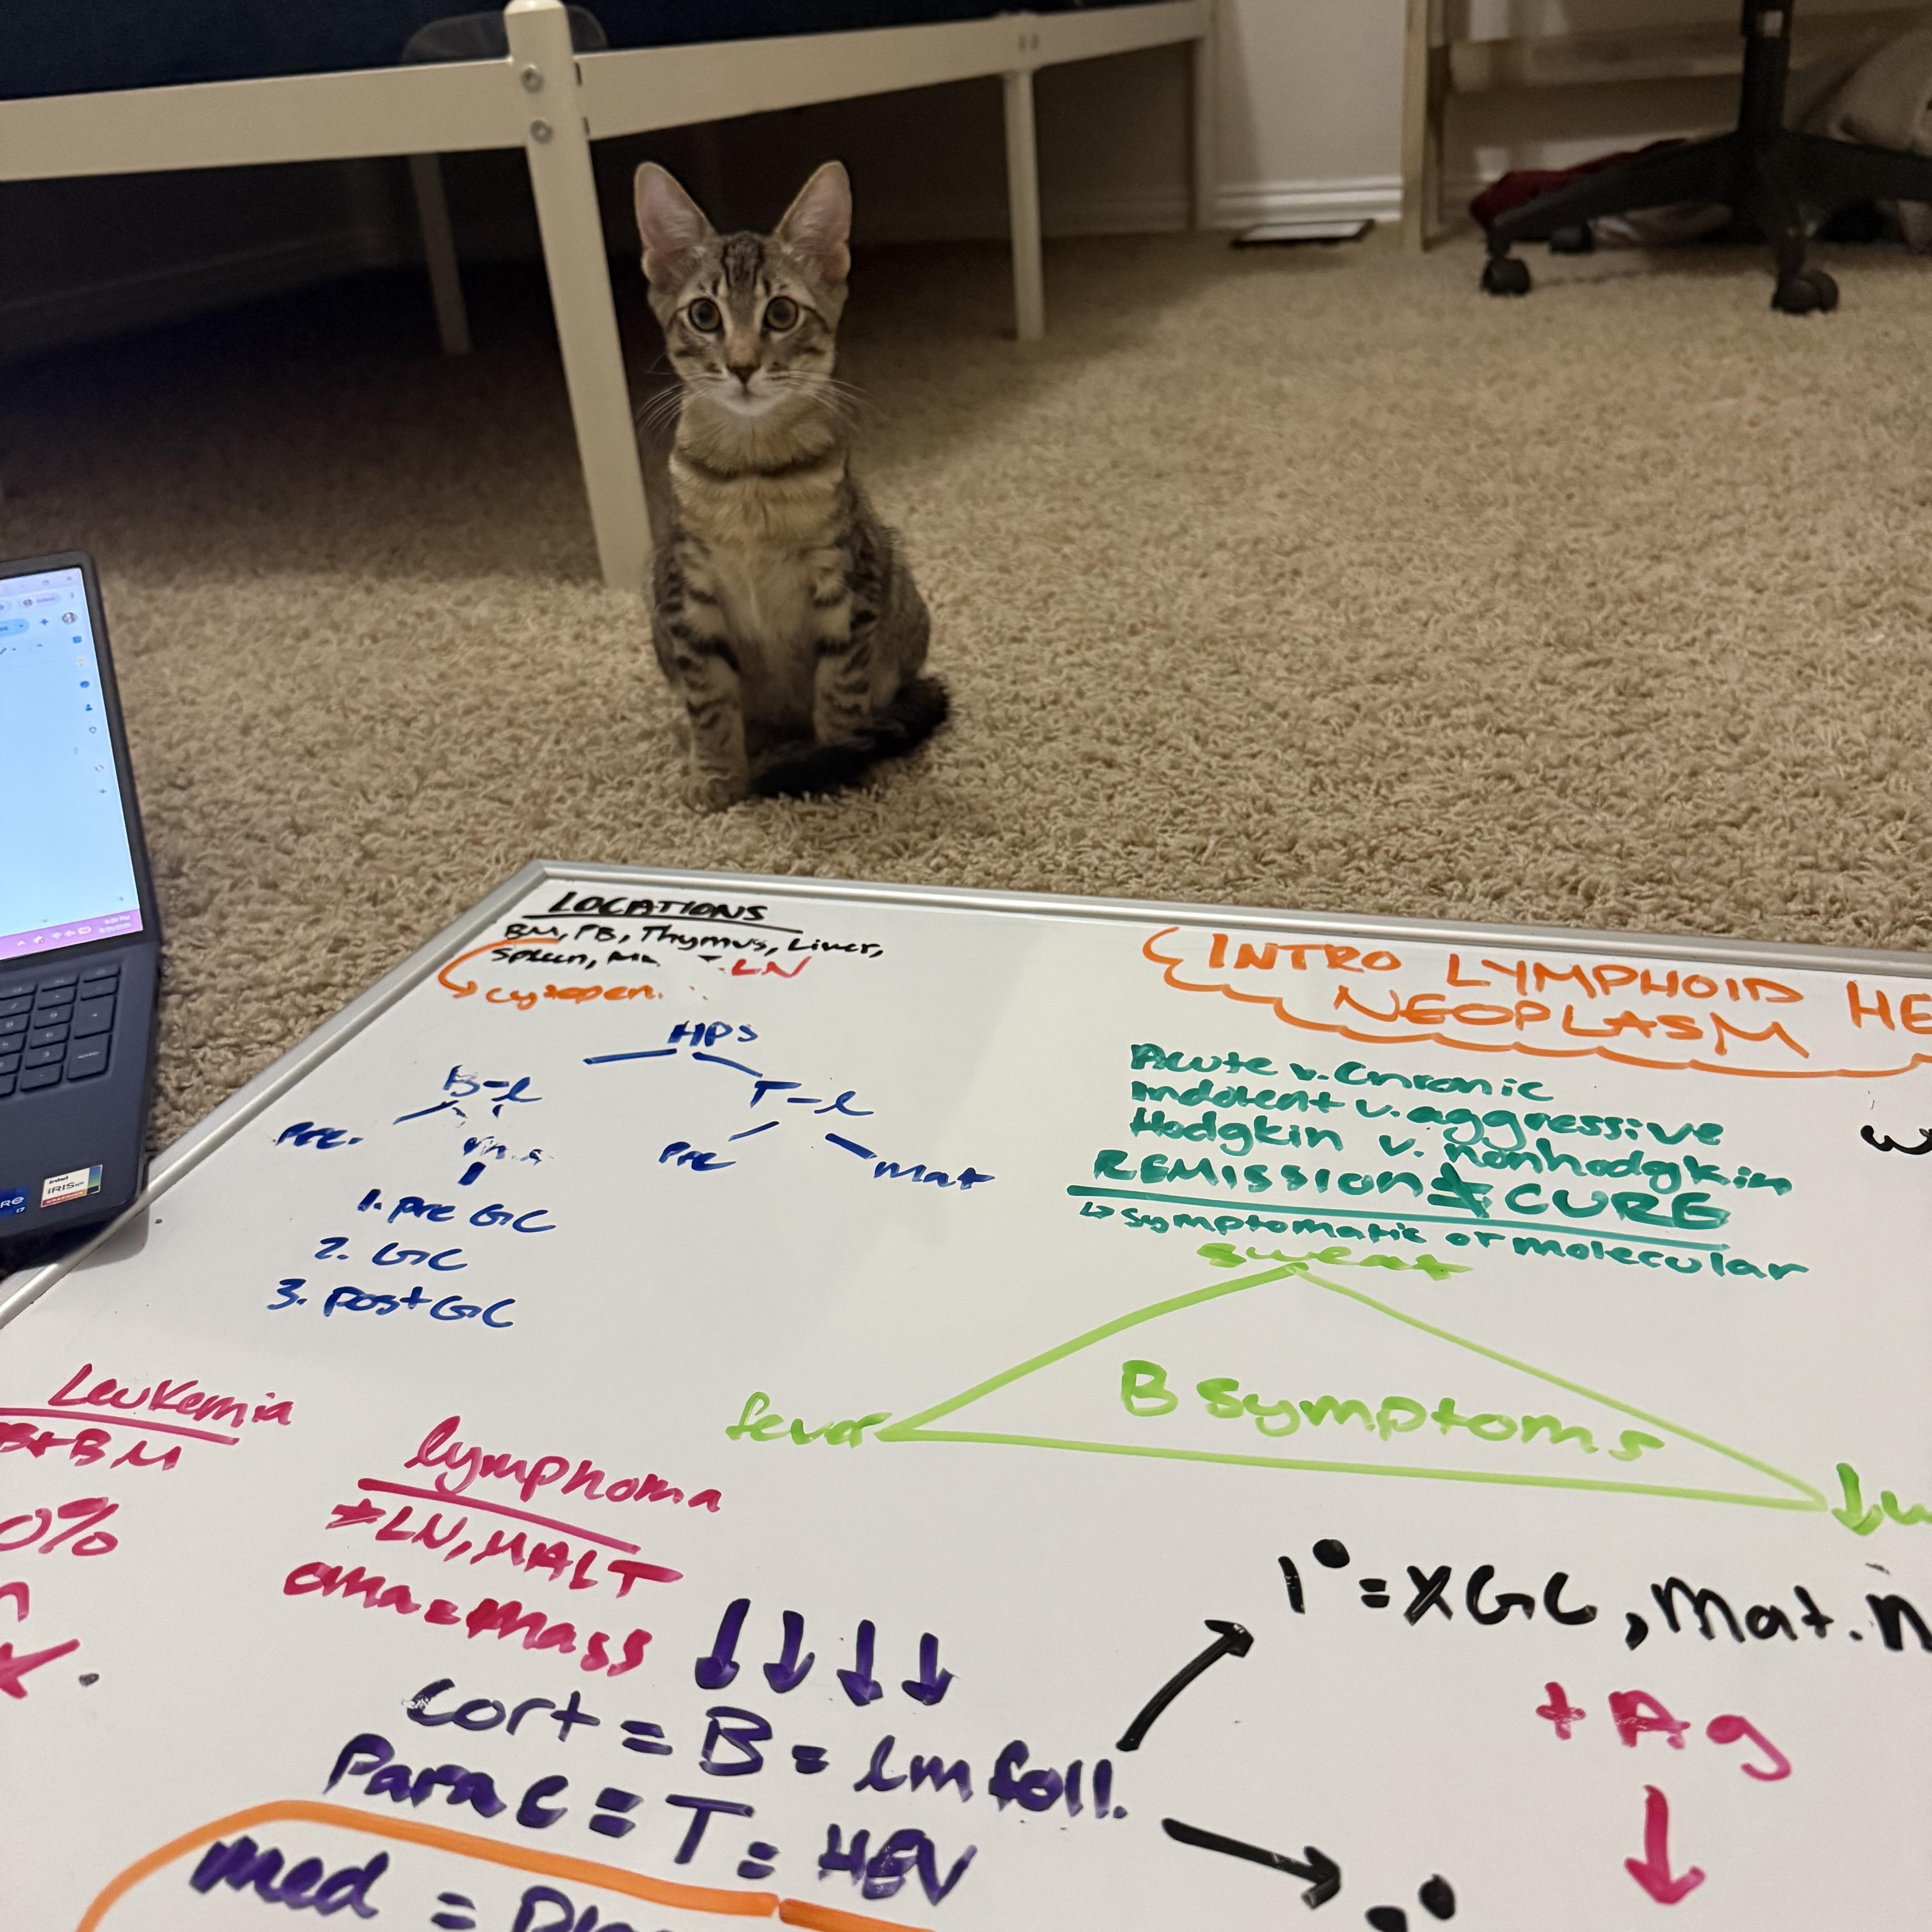 LOCATIONS
BM, PB, Thymus, Liver,
Spleen,
LN
cytopen.
HPS
B-l
T-l
Pre.
Pre
mat
1. pre GC
2. GC
3. post GC
INTRO LYMPHOID HE
NEOPLASM
Acute v. Chronic
Indolent v. aggressive
Hodgkin v. nonhodgkin
REMISSION ≠ CURE
↳ symptomatic or molecular
sweat
B symptoms
fever
↓w
Leukemia
B+BM
0%
lymphoma
*LN, MALT
oma = mass
↓ ↓ ↓ ↓
Cort = B = lm foll.
Para C = T = HEV
med =
1° = XGC, Mat. n
+ Ag
intel
iRIS xe
i7